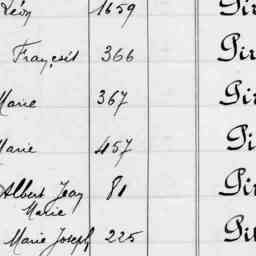 Léon 1659 Pir
François 366 Pir
Marie 367 Pir
Marie 457 Pi
Albert Jean 81 Pir
Marie
Marie Joseph 225 Pit